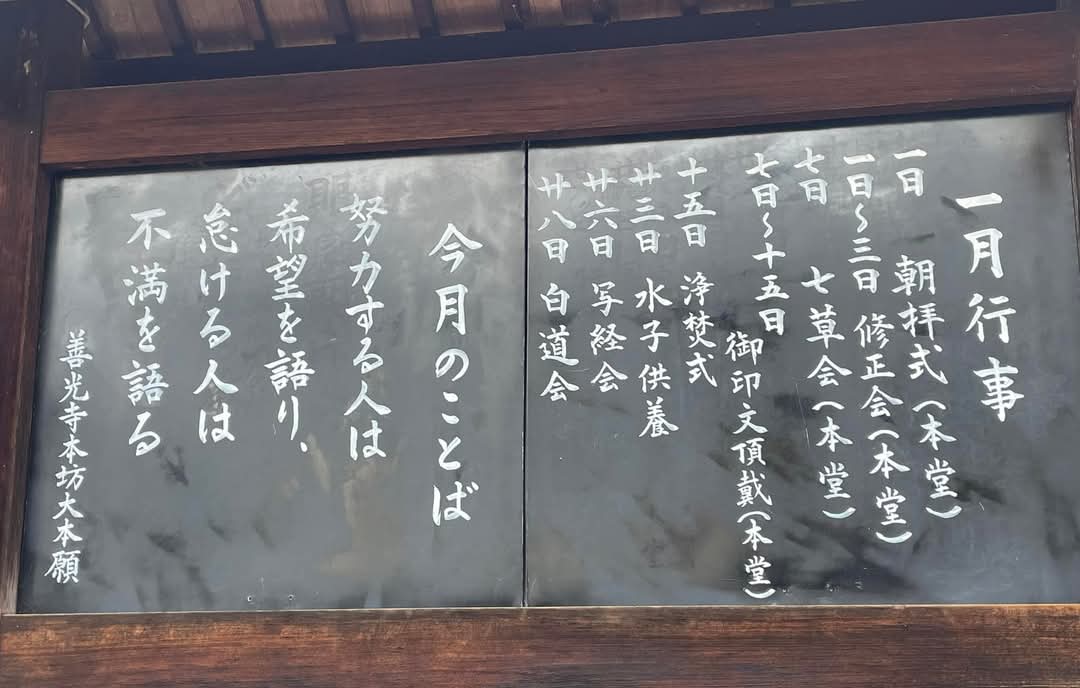 一月行事
一日 朝拝式（本堂）
一日～三日 修正会（本堂）
七日 七草会（本堂）
七日～十五日 御印文頂戴（本堂）
十五日 浄焚式
廿三日 水子供養
廿六日 写経会
廿八日 白道会
今月のことば
努力する人は
希望を語り、
怠ける人は
不満を語る
善光寺本坊大本願